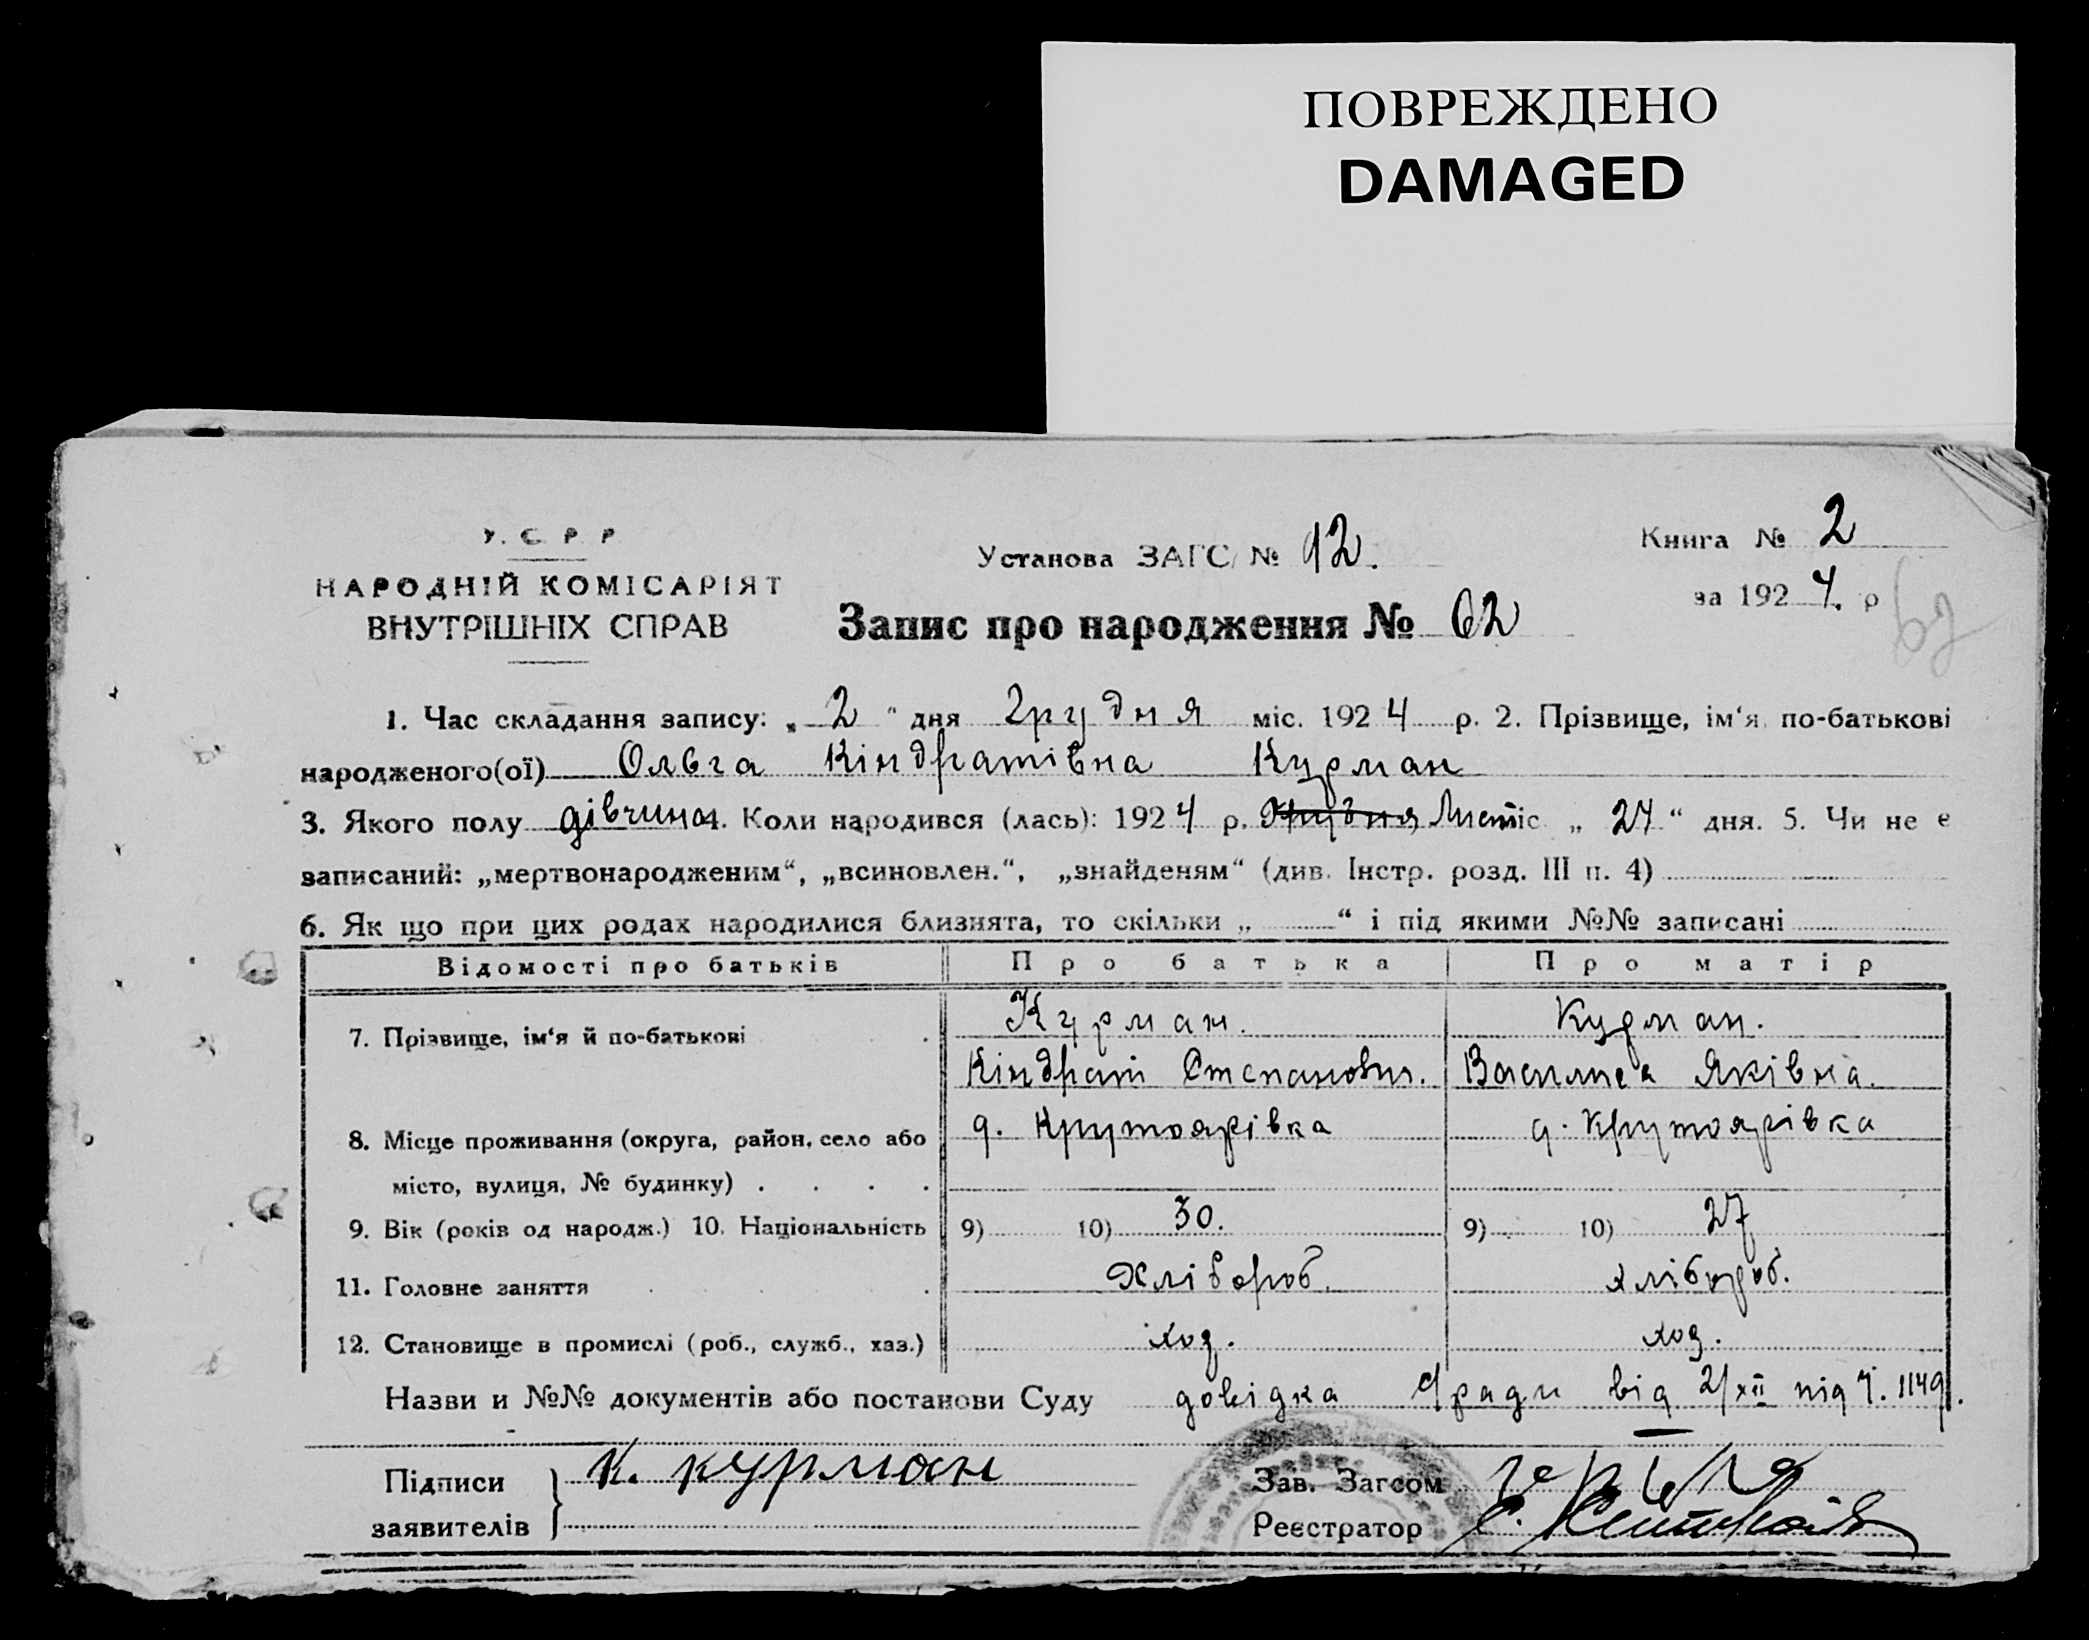 ПОВРЕЖДЕНО
DAMAGED
У. С. Р. Р
НАРОДНІЙ КОМІСАРІЯТ
ВНУТРІШНІХ СПРАВ
Установа ЗАГС № 12.
Запис про народження № 62
Книга № 2
за 1924. р
62
1. Час складання запису: „ 2 “ дня Грудня міс. 1924 р. 2. Прізвище, ім‘я по-батькові
народженого(ої) Ольга Кіндратівна Курман
3. Якого полу дівчина 4. Коли народився (лась): 1924 р. Грудня Лист міс „ 24 “ дня. 5. Чи не є
записаний: „мертвонародженим“, „всиновлен.“, „знайденям“ (див. Інстр. розд. III п. 4)
6. Як що при цих родах народилися близнята, то скільки „ “ і під якими №№ записані
Відомості про батьків Про батька Про матір
7. Прізвище, ім‘я й по-батькові Курман. Курман.
Кіндрат Степанович. Василиса Яківна.
8. Місце проживання (округа, район, село або д. Крутоярівка д. Крутоярівка
місто, вулиця, № будинку)
9. Вік (років од народж.) 10. Національність 9) 10) 30. 9) 10) 27
11. Головне заняття Хлібороб. хлібороб.
12. Становище в промислі (роб., служб., хаз.) хоз. хоз.
Назви и №№ документів або постанови Суду довідка С/ради від 2/XII під ч. 1149.
Підписи К. Курман
заявителів
Зав. Загсом
Реєстратор